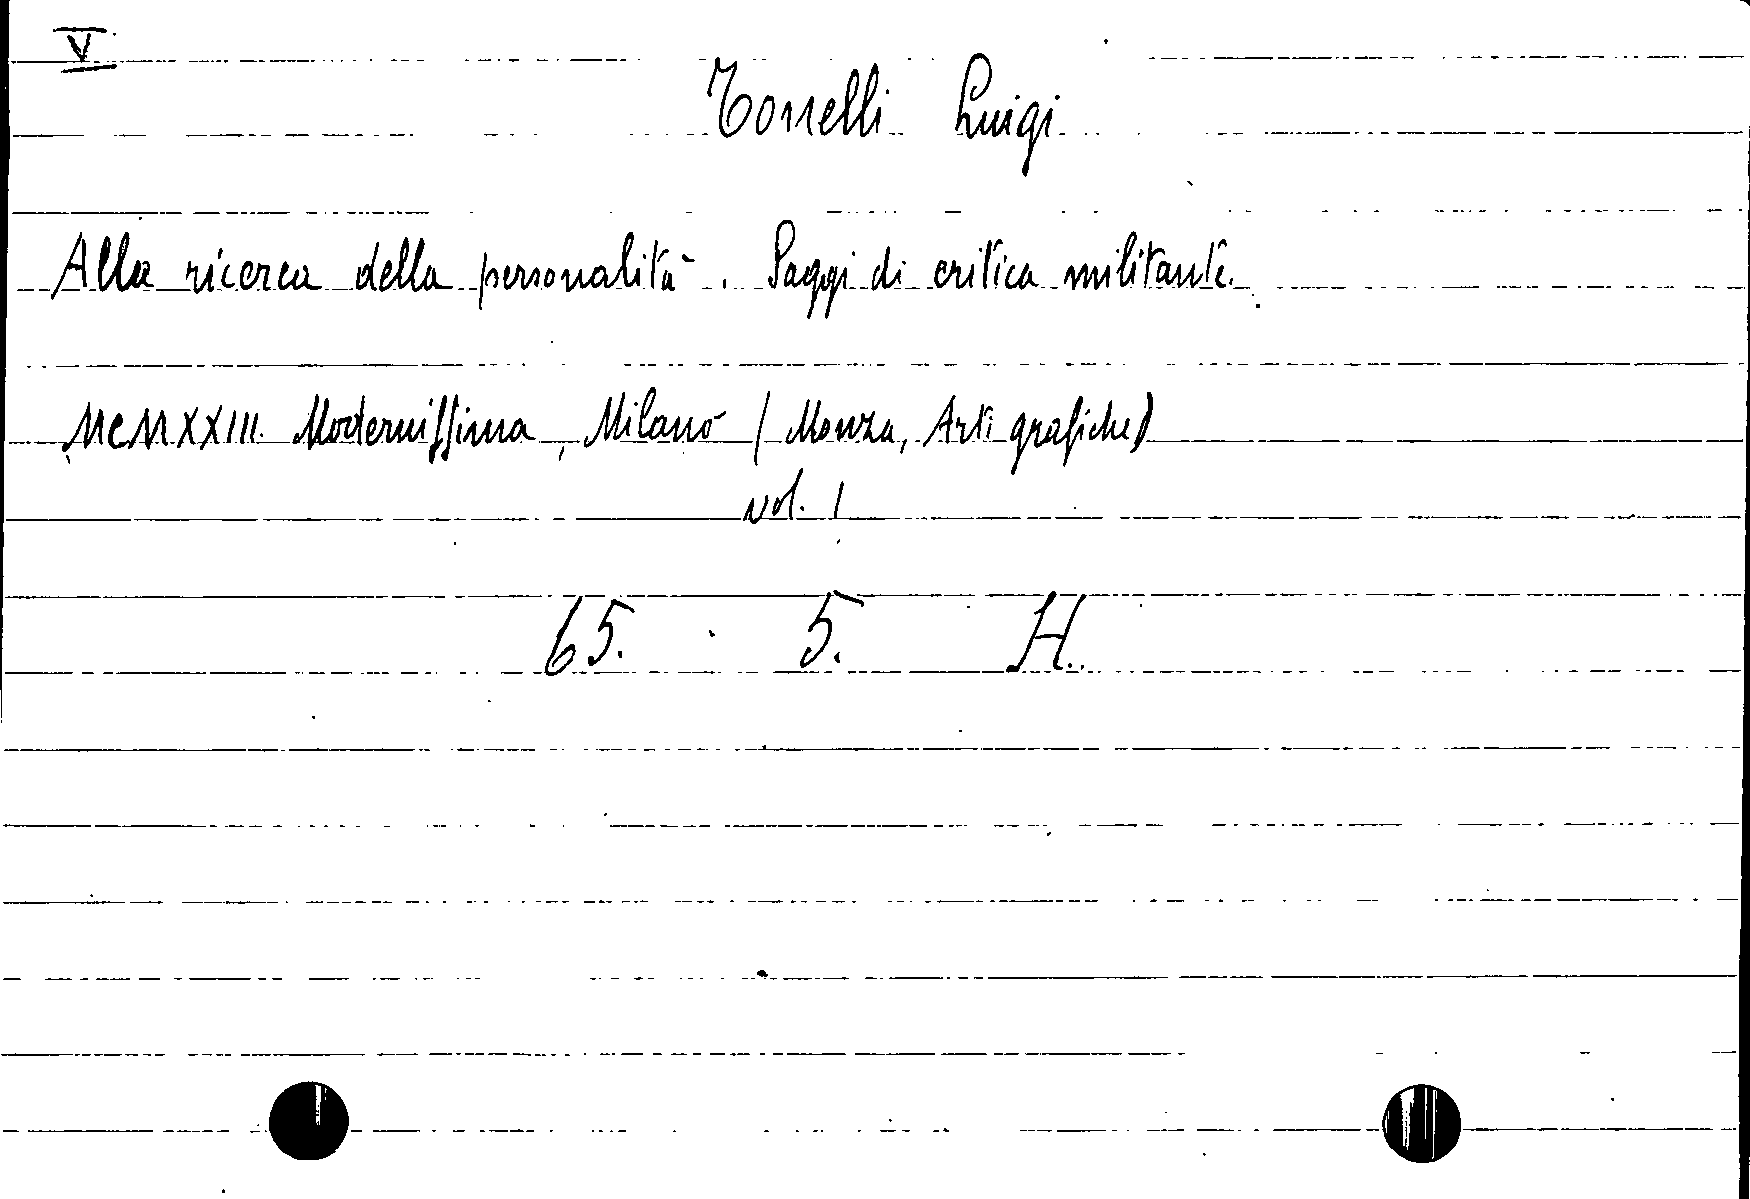 V
Tonelli Luigi
Alla ricerca della personalità. Saggi di critica militante.
MCMXXIII. Modernissima, Milano (Monza, Arti grafiche)
vol. 1
65. 5. H.